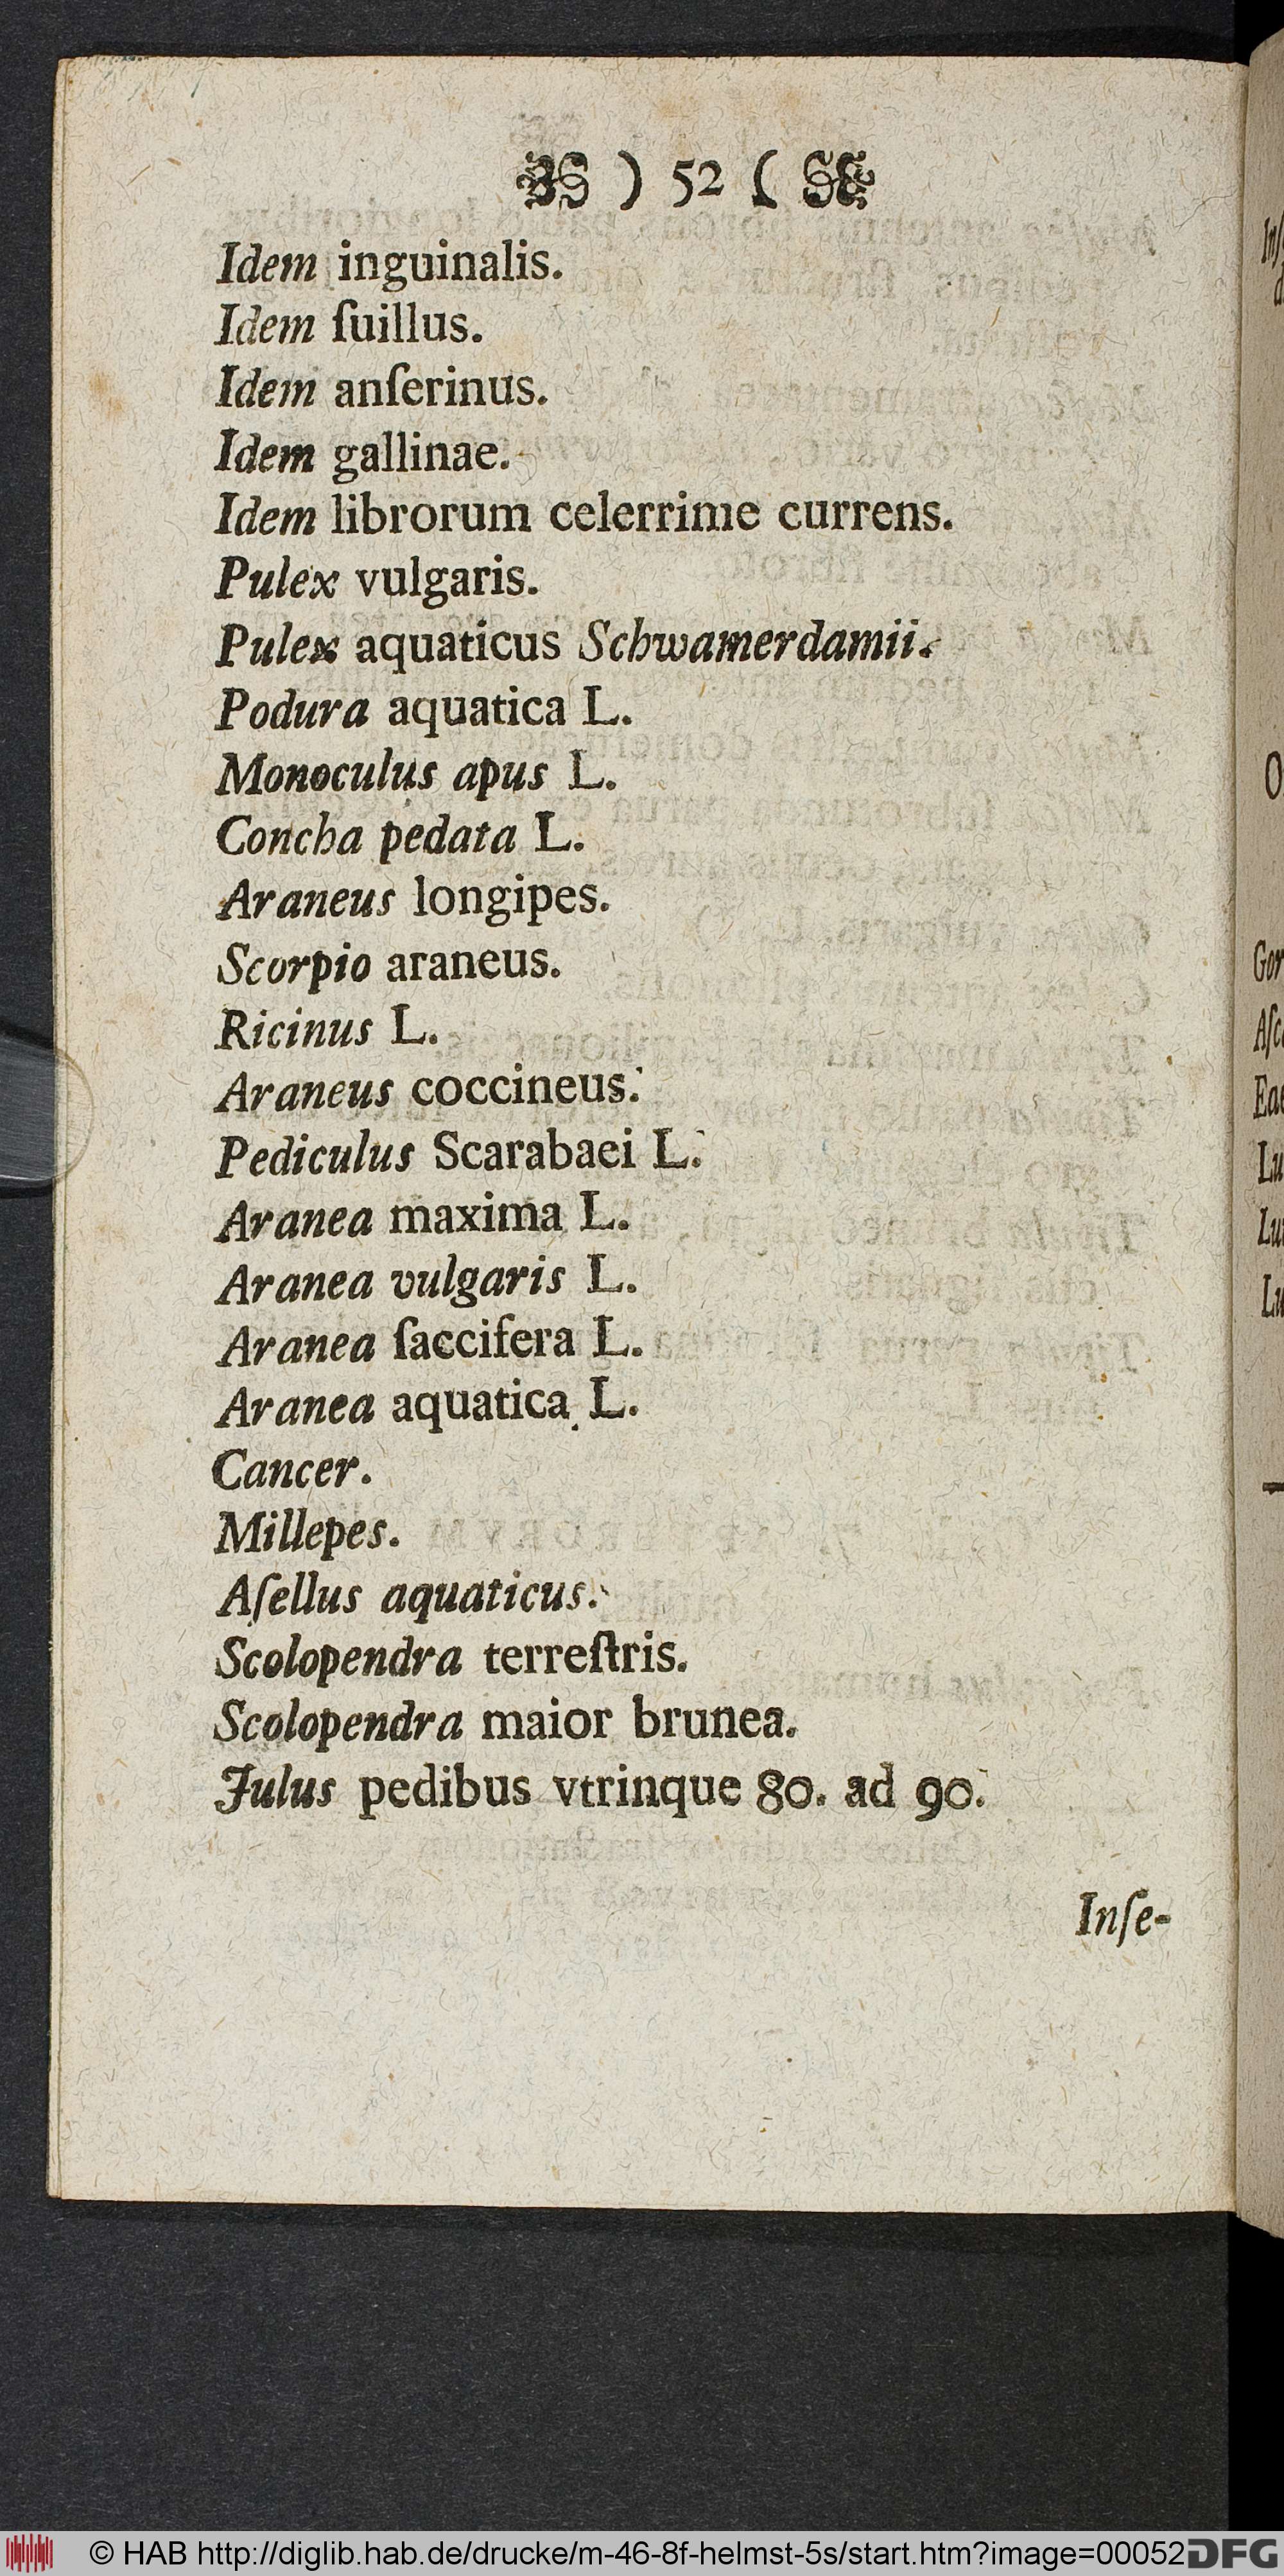 ) 52 (
Idem inguinalis.
Idem ſuillus.
Idem anſerinus.
Idem gallinae.
Idem librorum celerrime currens.
Pulex vulgaris.
Pulex aquaticus Schwamerdamii.
Podura aquatica L.
Monoculus apus L.
Concha pedata L.
Araneus longipes.
Scorpio araneus.
Ricinus L.
Araneus coccineus.
Pediculus Scarabaei L.
Aranea maxima L.
Aranea vulgaris L.
Aranea ſaccifera L.
Aranea aquatica L.
Cancer.
Millepes.
Aſellus aquaticus.
Scolopendra terreſtris.
Scolopendra maior brunea.
Julus pedibus vtrinque 80. ad 90.
Inſe-
© HAB http://diglib.hab.de/drucke/m-46-8f-helmst-5s/start.htm?image=00052 DFG